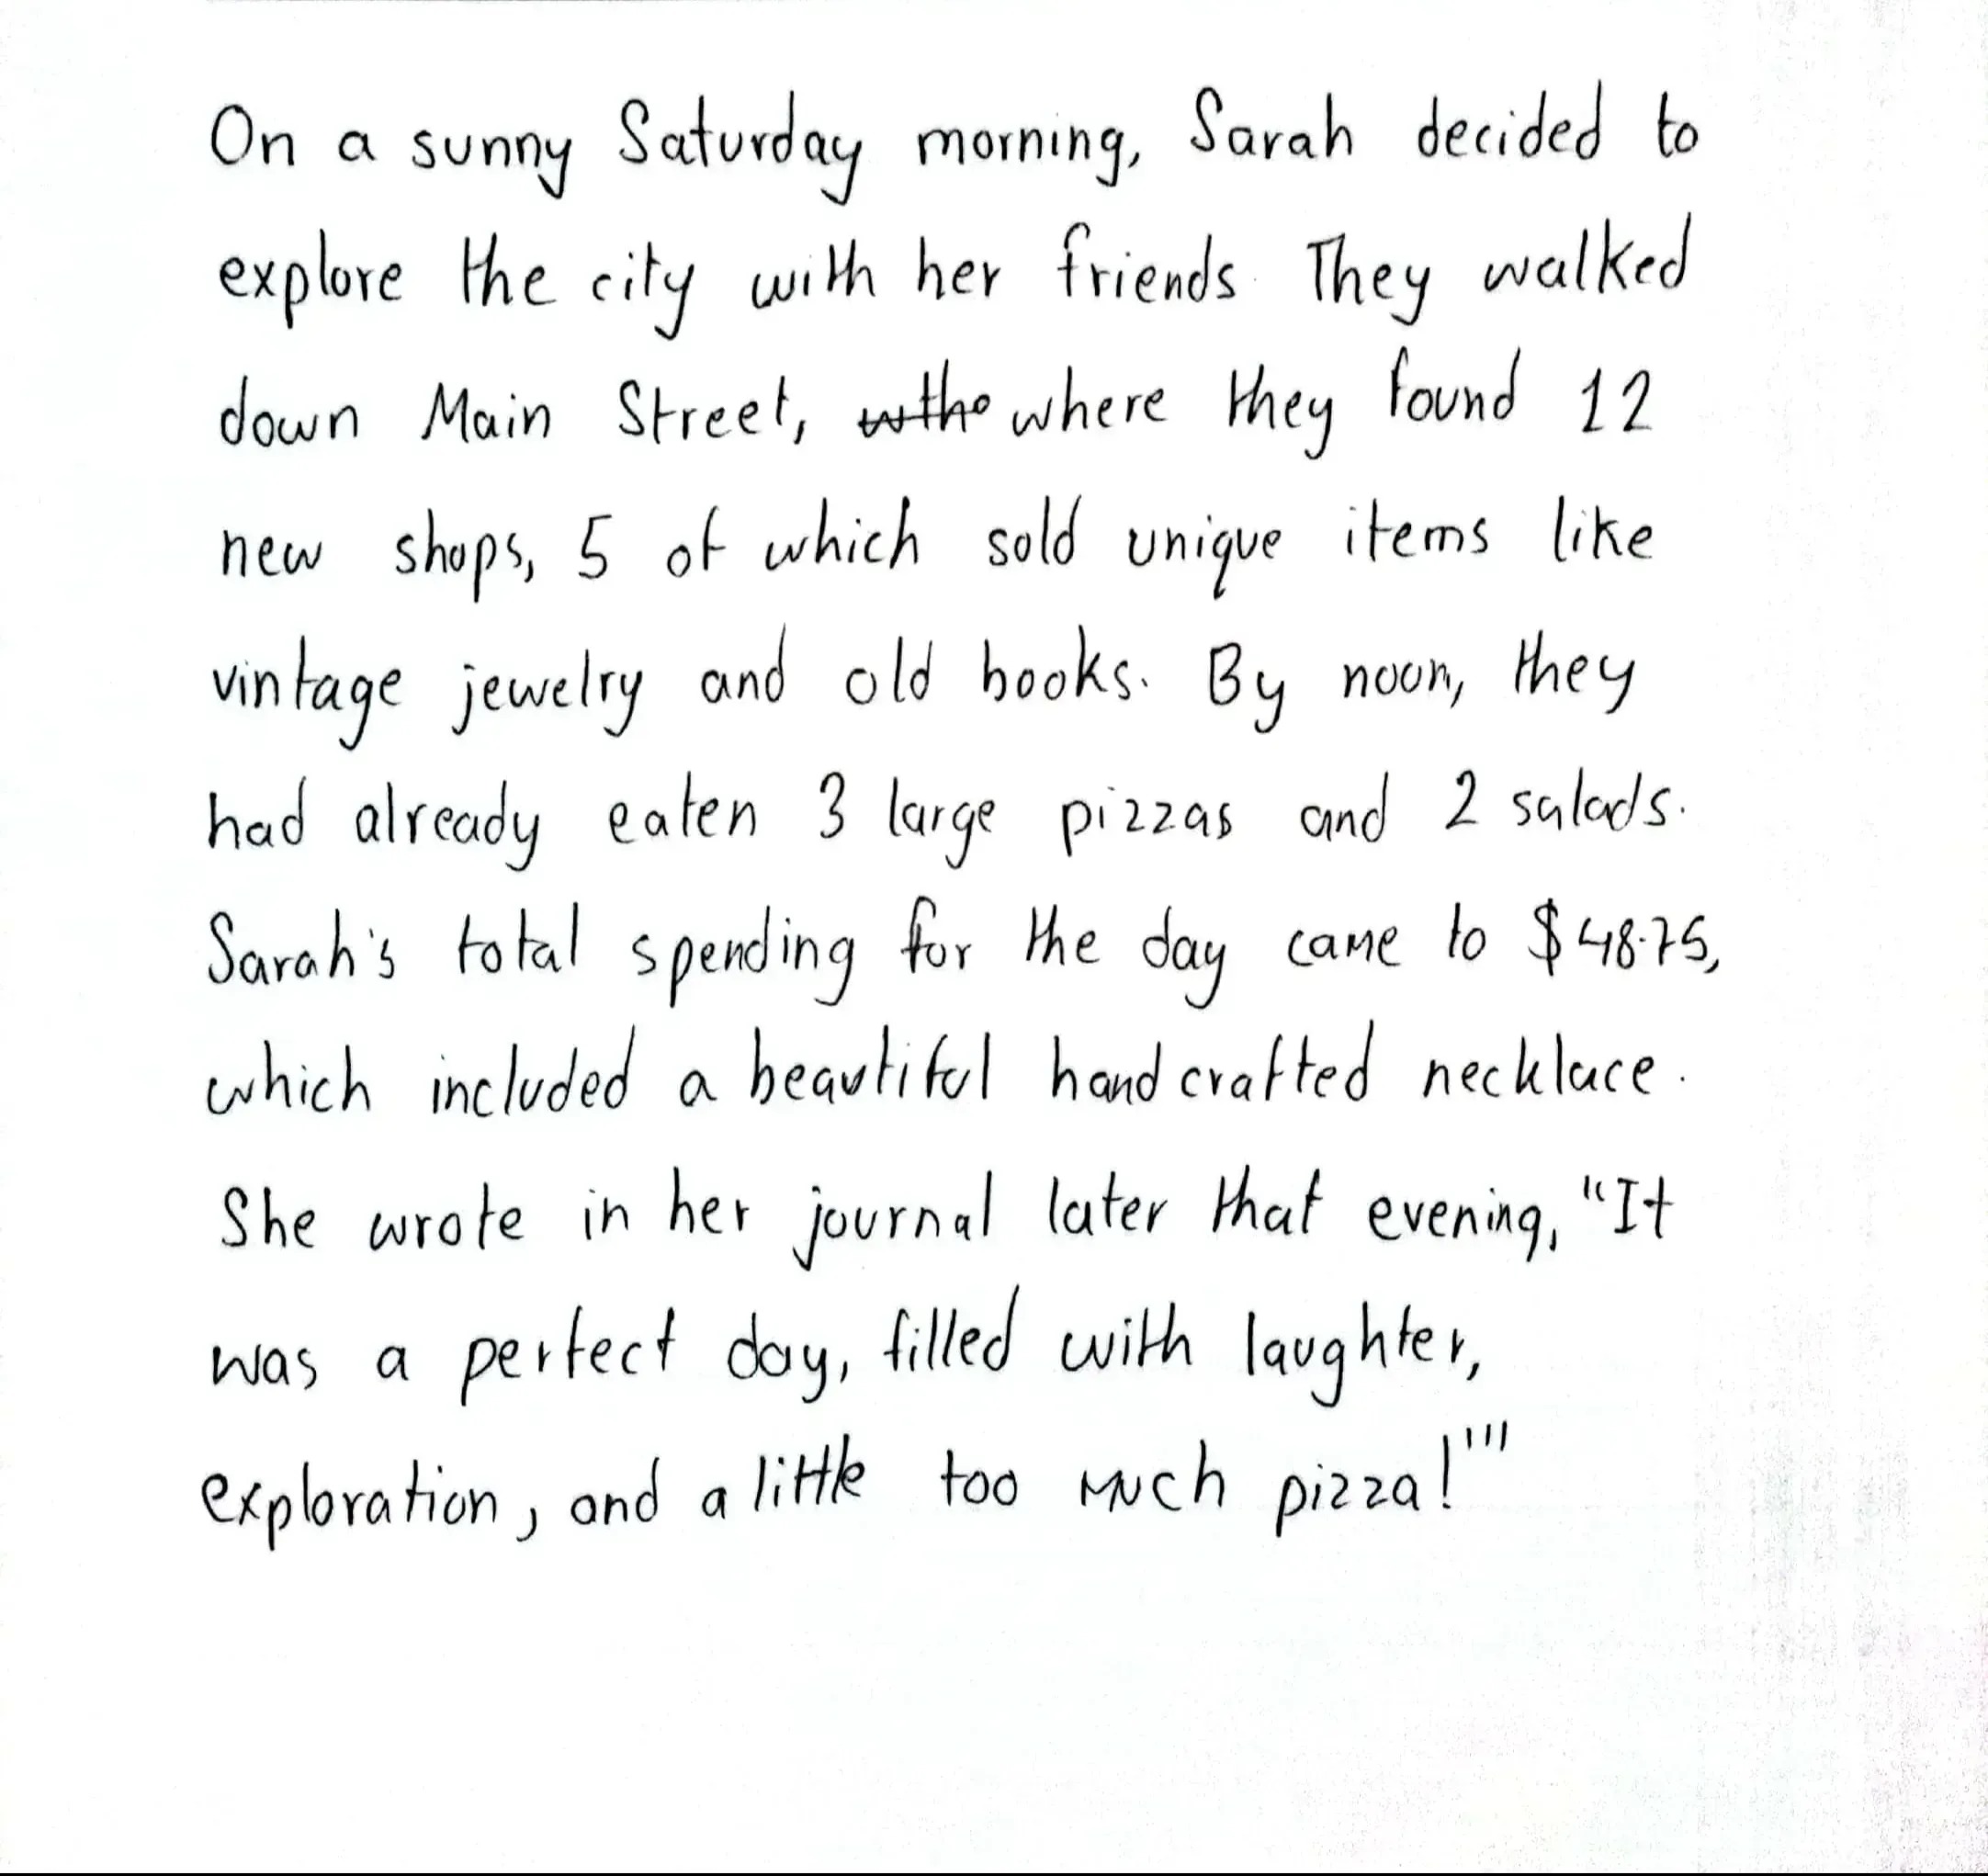 On a sunny Saturday morning, Sarah decided to
explore the city with her friends. They walked
down Main Street, where they found 12
new shops, 5 of which sold unique items like
vintage jewelry and old books. By noon, they
had already eaten 3 large pizzas and 2 salads.
Sarah's total spending for the day came to $48.75,
which included a beautiful handcrafted necklace.
She wrote in her journal later that evening, "It
was a perfect day, filled with laughter,
exploration, and a little too much pizza!'"